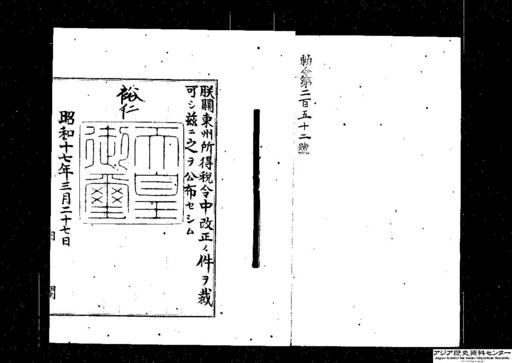 勅令第二百五十二號
朕關東州所得税令中改正ノ件ヲ裁
可シ茲ニ之ヲ公布セシム
裕仁
天皇
御璽
昭和十七年三月二十七日
内閣
アジア歴史資料センター
Japan Center for Asian Historical Records